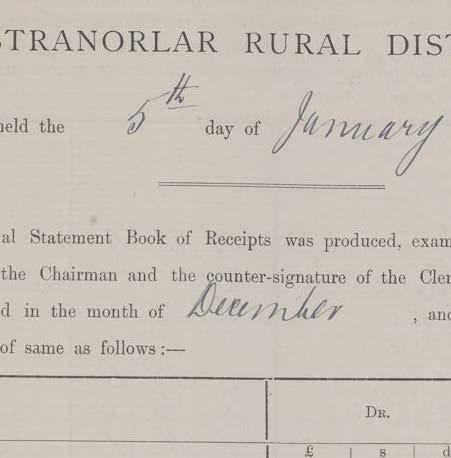 STRANORLAR RURAL DIST
held the 5th day of January
al Statement Book of Receipts was produced, exam
the Chairman and the counter-signature of the Cler
d in the month of December , and
of same as follows :—
DR.
£ s d